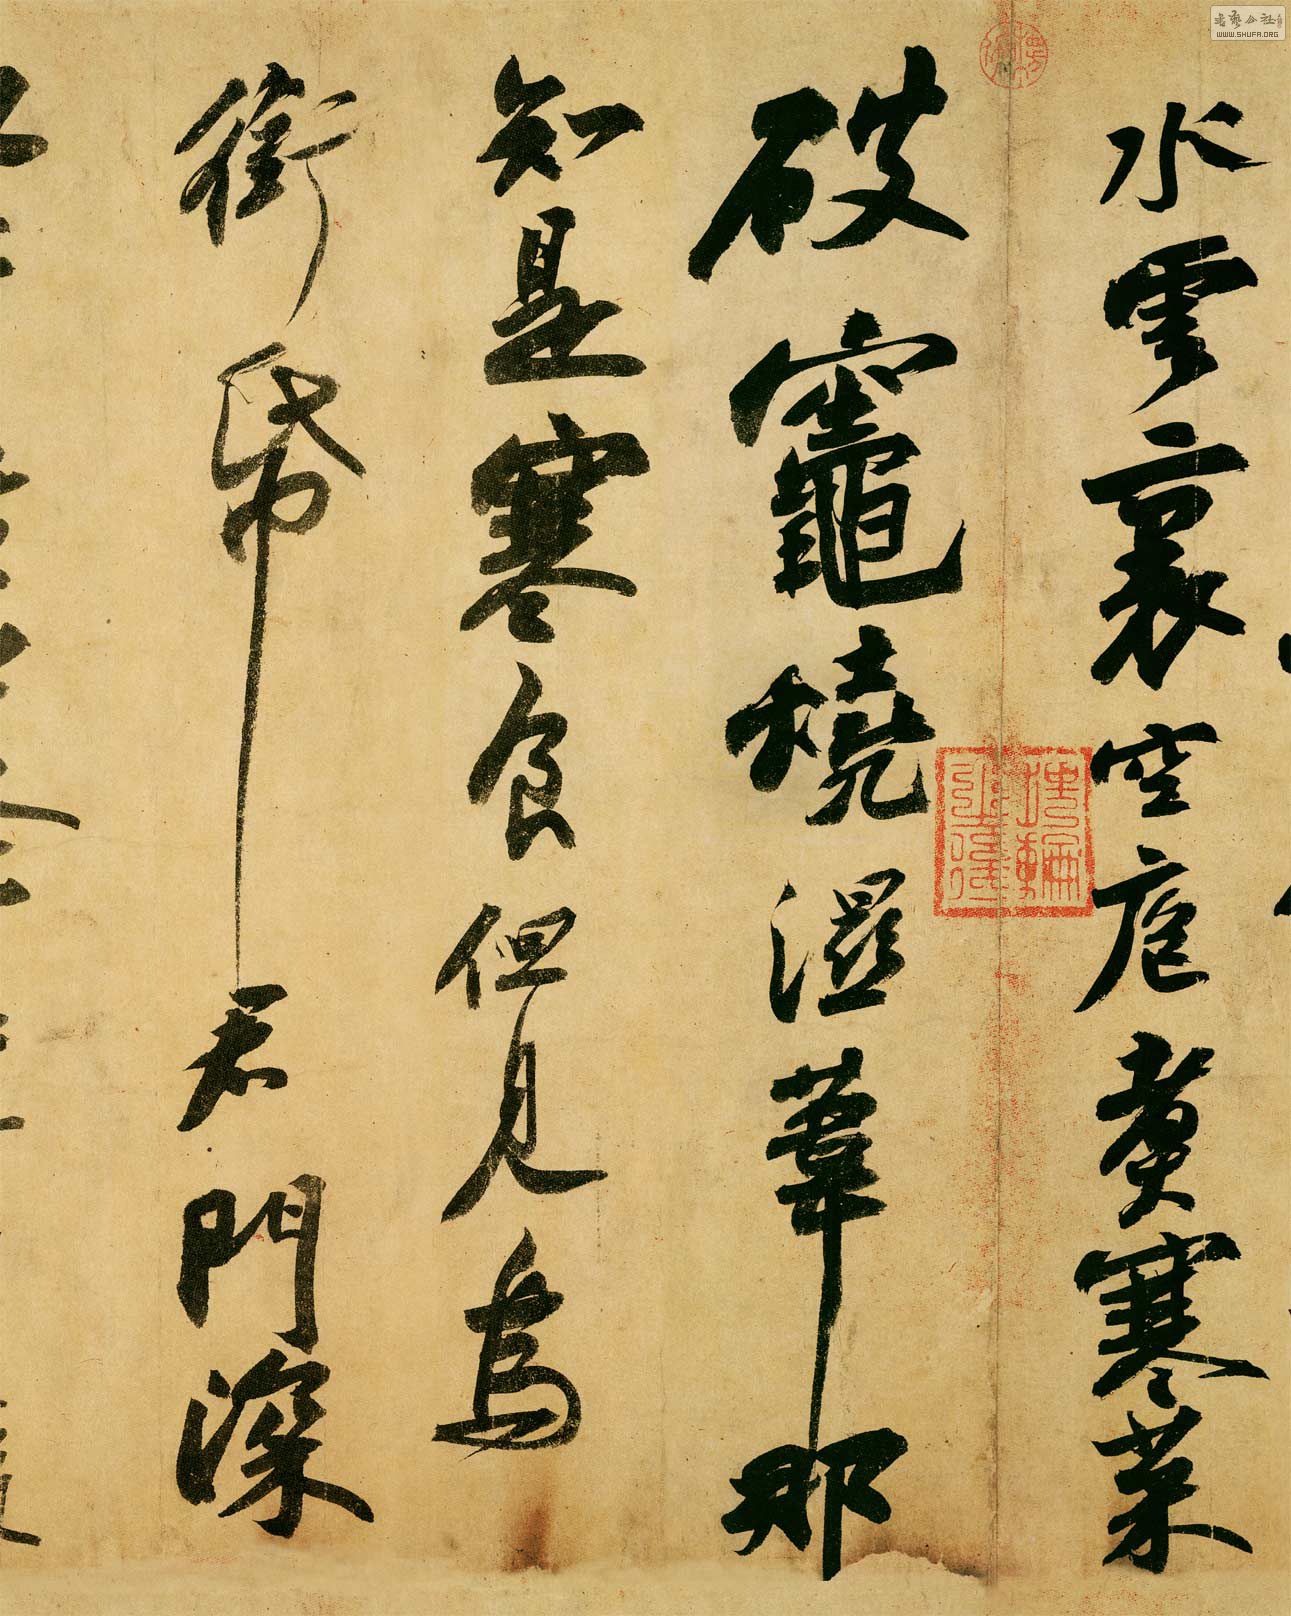 水雲裏空庖煮寒菜
破竈燒濕葦那
知是寒食但見烏
銜帋君門深
書藝公社
WWW.SHUFA.ORG